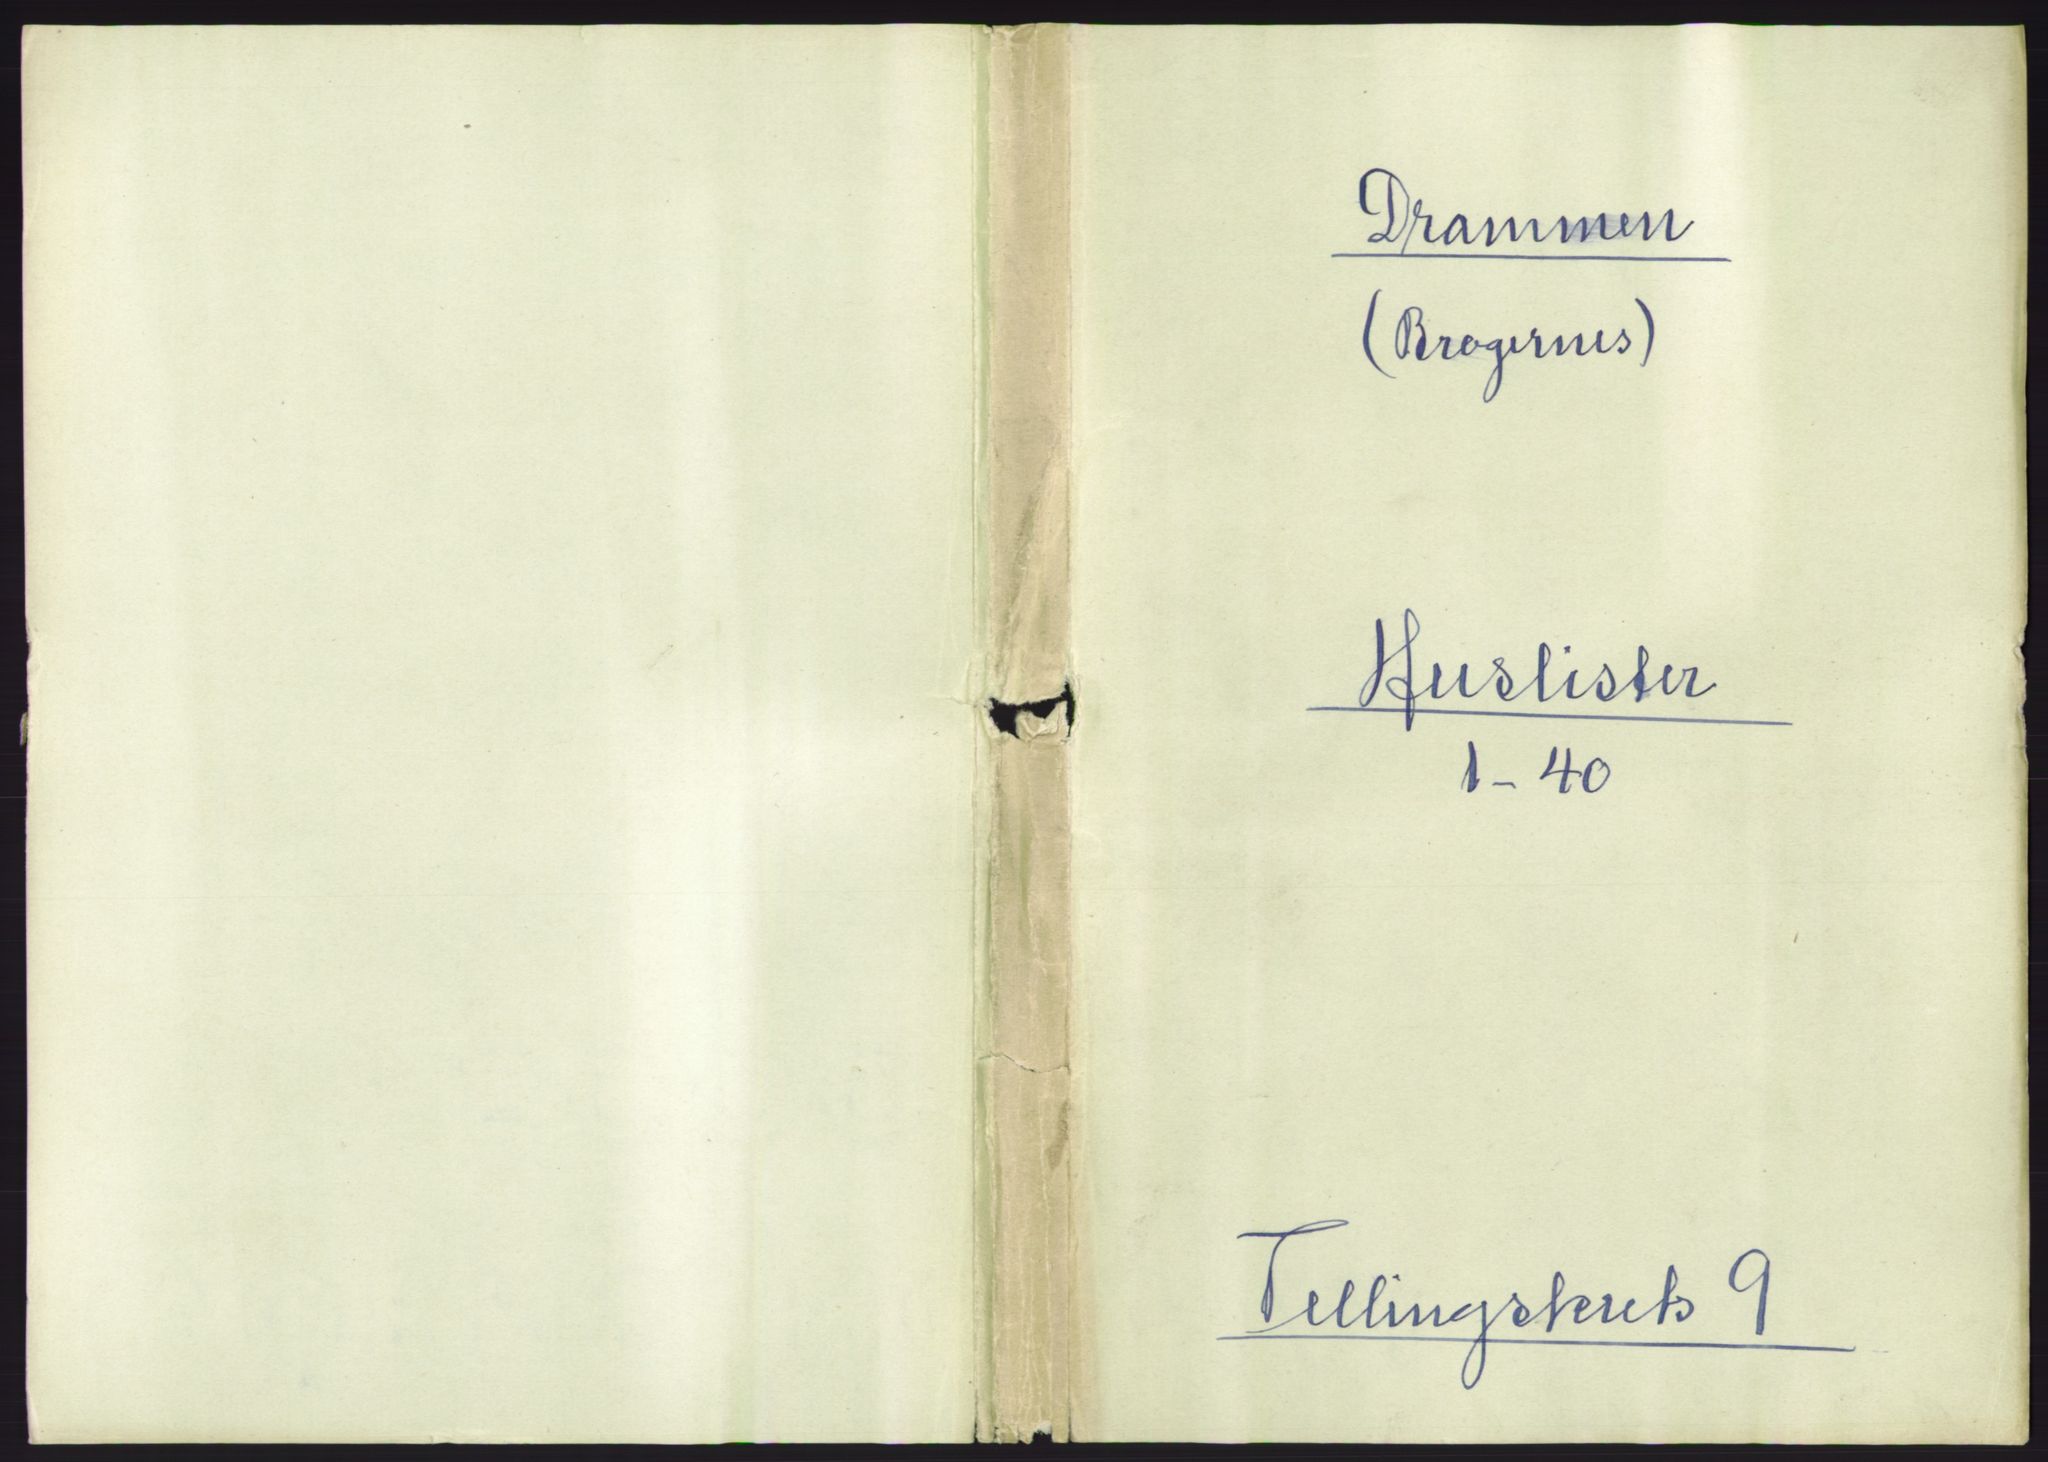 Drammen
(Bragernes)
Huslister
1-40
Tellingskrets 9